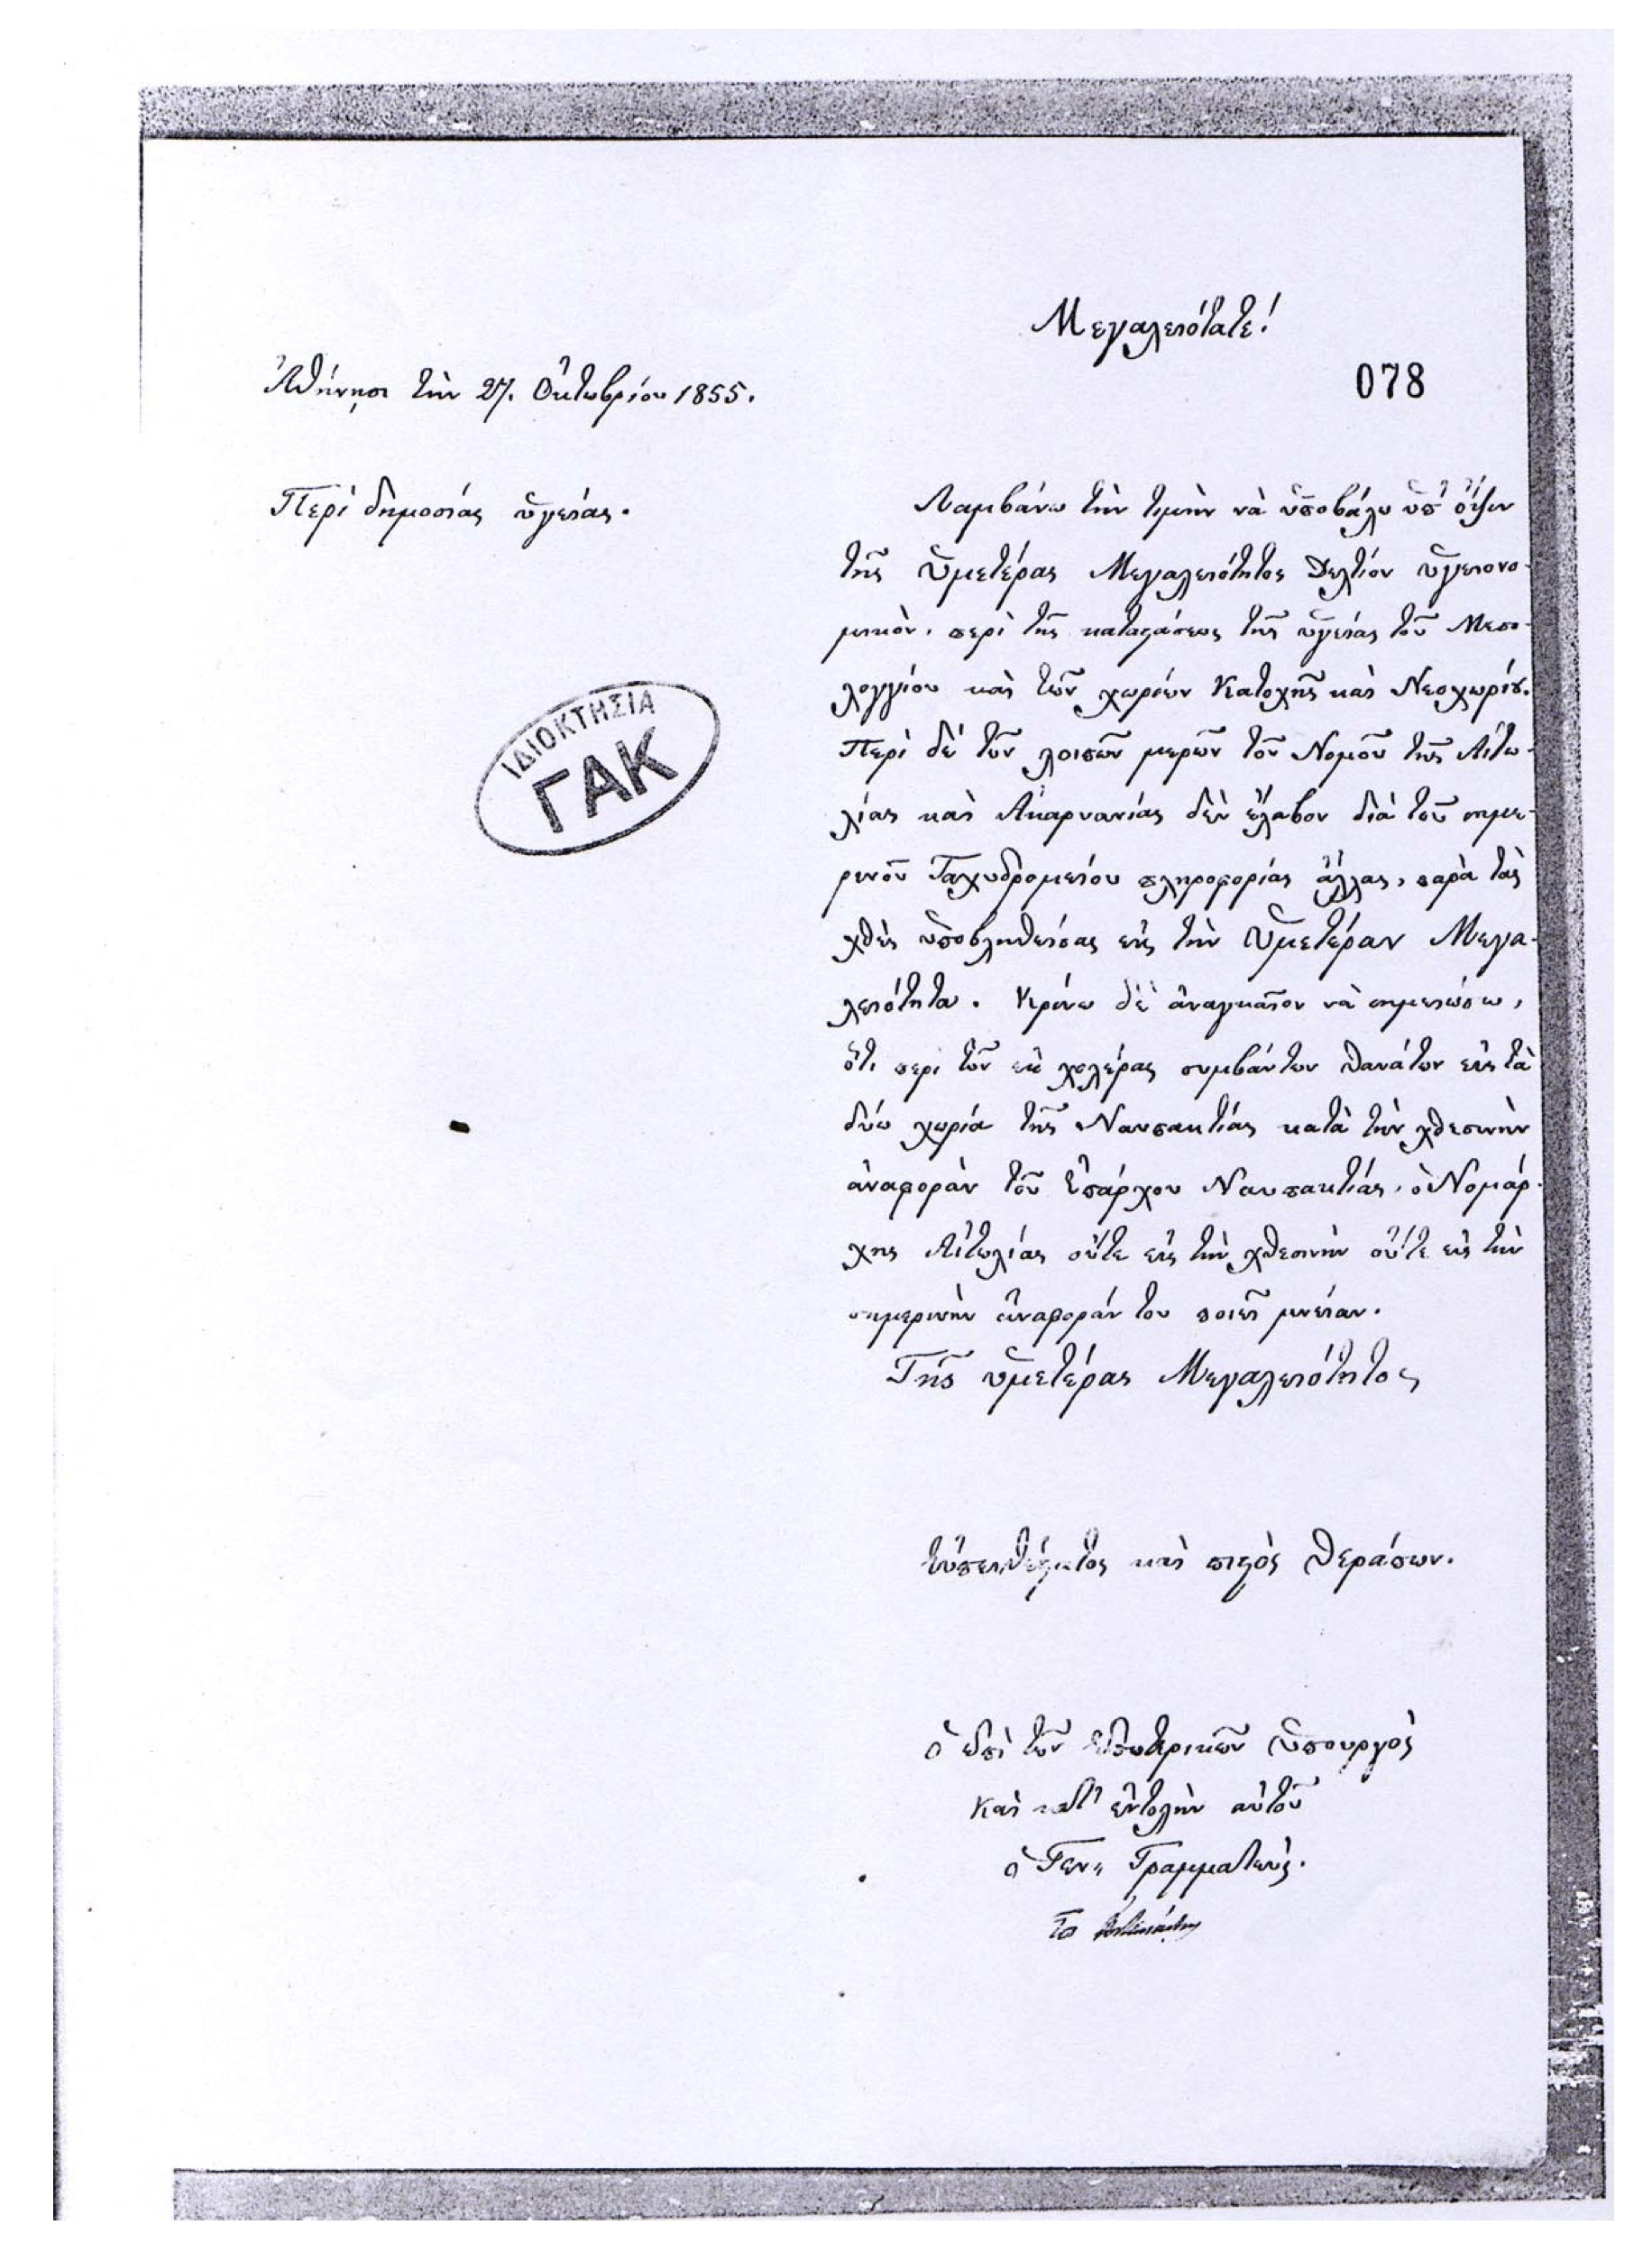 Μεγαλειότατε!
078
Ἀθήνησι τὴν 27. Ὀκτωβρίου 1855.
Περὶ δημοσίας ὑγείας.
Λαμβάνω τὴν τιμὴν νὰ ὑποβάλω ὑπ' ὄψιν
τῆς Ὑμετέρας Μεγαλειότητος Δελτίον ὑγειονο-
μικὸν, περὶ τῆς καταστάσεως τῆς ὑγείας τοῦ Μεσο-
λογγίου καὶ τῶν χωρίων Κατοχῆς καὶ Νεοχωρίου.
Περὶ δὲ τῶν λοιπῶν μερῶν τοῦ Νομοῦ τῆς Αἰτω-
λίας καὶ Ἀκαρνανίας δὲν ἔλαβον διὰ τοῦ σημε-
ρινοῦ Ταχυδρομείου πληροφορίας ἄλλας, παρὰ τὰς
χθὲς ὑποβληθείσας εἰς τὴν Ὑμετέραν Μεγα-
λειότητα. Κρίνω δὲ ἀναγκαῖον νὰ σημειώσω,
ὅτι περὶ τῶν ἐκ χολέρας συμβάντων θανάτων εἰς τὰ
δύω χωρία τῆς Ναυπακτίας κατὰ τὴν χθεσινὴν
ἀναφορὰν τοῦ Ἐπάρχου Ναυπακτίας, ὁ Νομάρ-
χης Αἰτωλίας οὔτε εἰς τὴν χθεσινὴν οὔτε εἰς τὴν
σημερινὴν ἀναφοράν του ποιεῖ μνείαν.
Τῆς ὑμετέρας Μεγαλειότητος
Εὐπειθέστατος καὶ πιστὸς θεράπων.
ὁ ἐπὶ τῶν Ἐσωτερικῶν Ὑπουργὸς
Καὶ κατ' ἐντολὴν αὐτοῦ
ὁ Γεν. Γραμματεύς.
ΙΔΙΟΚΤΗΣΙΑ
ΓΑΚ